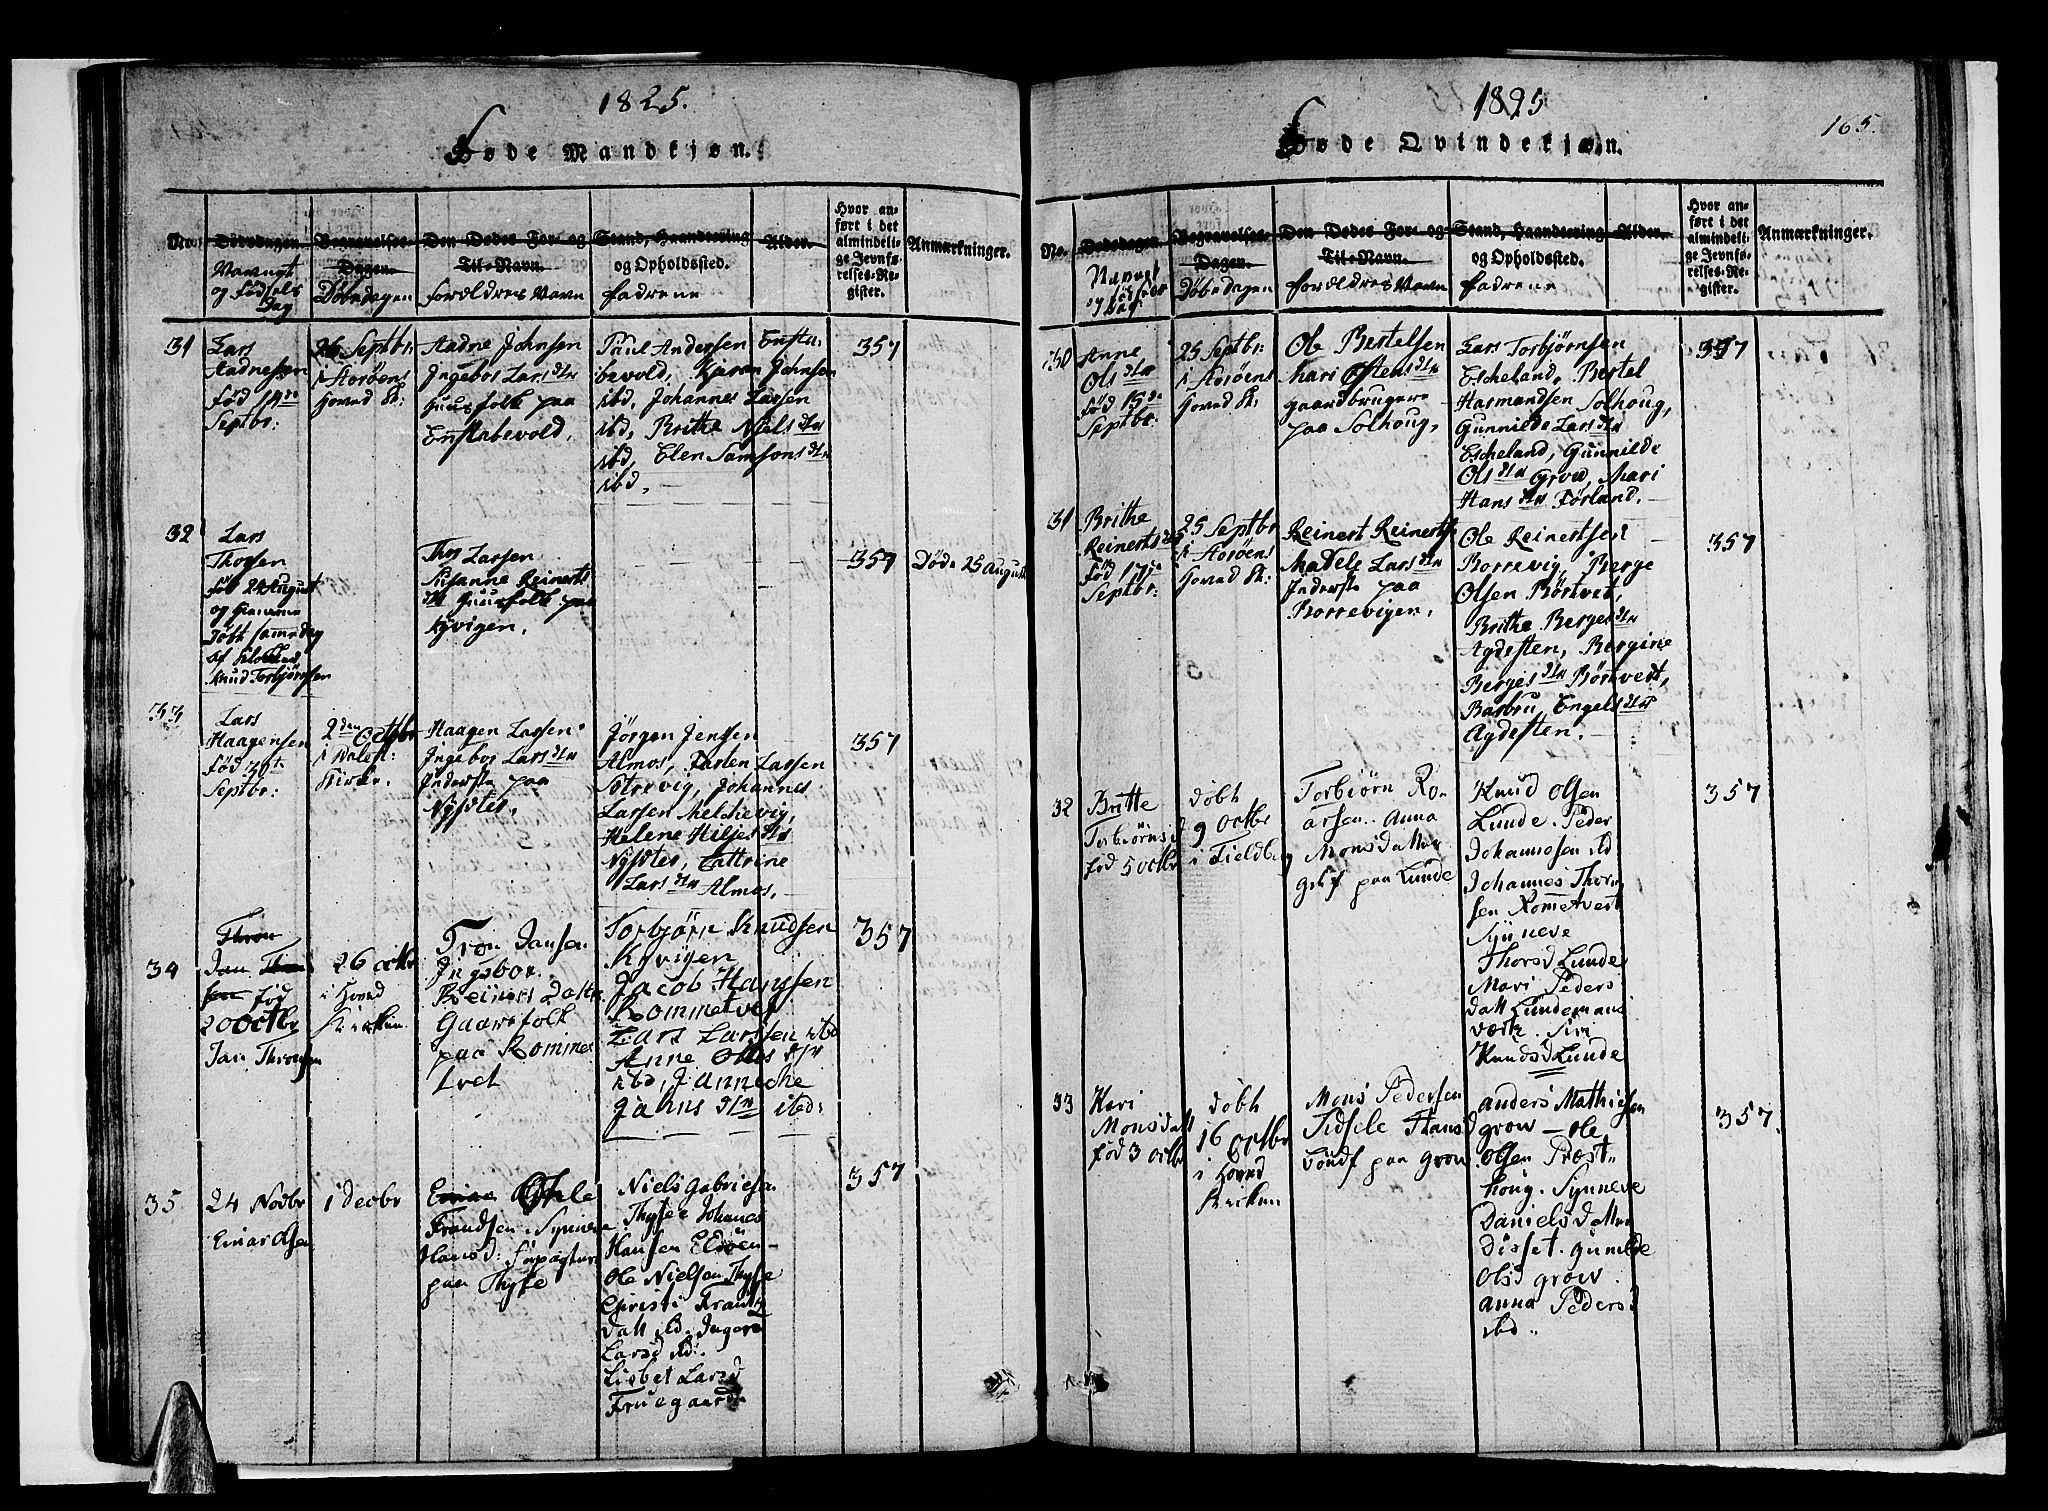 1825.
Føde Mandkjøn.
No.
Dødsdagen.
Navnet
og Fødsels
Dag
Begravelses-
Dagen.
Døbedagen
Den Dødes For- og
Til-Navn.
Forældres Navn
Stand, Haandtering
og Opholdssted.
Fadrene
Alder.
Hvor an-
ført i det
almindeli-
ge Jevnfø-
relses-Re-
gister.
Anmærkninger.
31
Lars
Aadnessen
Fød 14de
Septbr:
26 Septbr:
i Storøens
Hoved K:
Aadne Johnsen
Ingebor Larsdtr
Huusfolk paa
Enstabevold.
Paul Andersen Ensta-
bevold, Johnsen
ibd, Johannes Larsen
ibd, Brithe Nielsdtr
ibd, Elen Samsonsdtr
ibd,
357
32
Lars
Thorsen
Fød 24 August
og Hiemme
Døbt samme dag
af
Knud Torbjørnsen
Thor Larsen
Susanne Reinerts
dtr Huusfolk paa
Kyvigen.
357
Døde 25 August
33
Lars
Haagensen
Fød 30te
Septbr:
2den Octbr
i
Kirke.
Haagen Larsen
Ingebor Larsdtr
Inderste paa
Nysøter,
Jørgen Jensen
Almos, Larsen
Johannes
Larsen Melchevig,
Helene Hiljesdtr
Nysøter, Cathrine
Larsdtr Almos.
357
34
Thron
Jan
sen Fød
20 Octbr
Jan Thronsen
26 octbr
i Hoved
Kirken
Tron Jansen
Ingebor
Reiners Datter
Gaardfolk
paa Rommet
vet
Torbjørn Knudsen
Kyvigen
Jacob Hanssen
Rommetvet
Lars Larsen ibd
Anne Olles dtr
ibd, Janneche
Jahns dtr ibd:
357
35
24 Novbr
Einar Olsen
1 decbr
Einar Ole
Frandsen. Synneva
Hansd:
paa Thyse
Niels Gabrielsen
Thyse Johanes
Hansen
Ole Nielsen Thyse
Christi Frantz
Datt ibd. Inger
Larsd ibd:
Lisbet Larsd
Fruegaard
357
1825
165.
Føde Qvindekjøn.
No.
Dødsdagen.
Navnet
og Fødsels
Dag
Begravelses-
Dagen.
Døbedagen
Den Dødes For- og
Til-Navn.
Forældres Navn
Stand, Haandtering
og Opholdssted.
Fadrene
Alder.
Hvor an-
ført i det
almindeli-
ge Jevnfø-
relses-Re-
gister.
Anmærkninger.
30
Anne
Olsdtr
Fød 15de
Septbr.
25 Septbr:
i Storøens
Hoved K:
Ole Bertelsen
Mari Ostensdtr
gaardbrugere
paa Solhoug,
Lars Torbjørnsen
Escheland, Bertel
Harmandsen Solhoug,
Gunnilde Larsdtr
Escheland, Gunnilde
Olsdtr Grov, Mari
Hansdtr Førland.
357
31
Brithe
Reinertsdtr
Fød 17de
Septbr:
25 Septbr
i Storøens
Hoved K:
Reinert Reinertsen
Madele Larsdtr
Inderste paa
Borrevigen.
Ole Reinertsen
Borrevig, Berge
Olsen Børtvet,
Brithe Bergesdtr
Agdesten, Bergine
Bergesdtr Børtvet,
Barbru Engelsdtr
Agdesten.
357
32
Britte
Torbiørnsd
fød 5 octbr
døbt
9 octbr
i Fieldberg
Torbiørn Ro-
arsen. Anna
Monsdatter
paa Lunde
Knud Olsen
Lunde. Peder
Johannesen ibd
Johannes Thor-
sen Rometvet
Synneve
Thorsd Lunde
Mari Peders
datt Lundemans
værk. Siri
Knudsd Lunde
357
33
Kari
Monsdatt
fød 3 octbr
døbt
16 Octbr
i Hoved
Kirken
Mons Pedersen
Sidsele Hansd
paa grov
Anders Mathiesen
grov – Ole
Olsen Præst-
houg. Synneve
Danielsdatter
Disset. Gunilde
Olsd grov.
Anna Pedersd
ibd.
357.